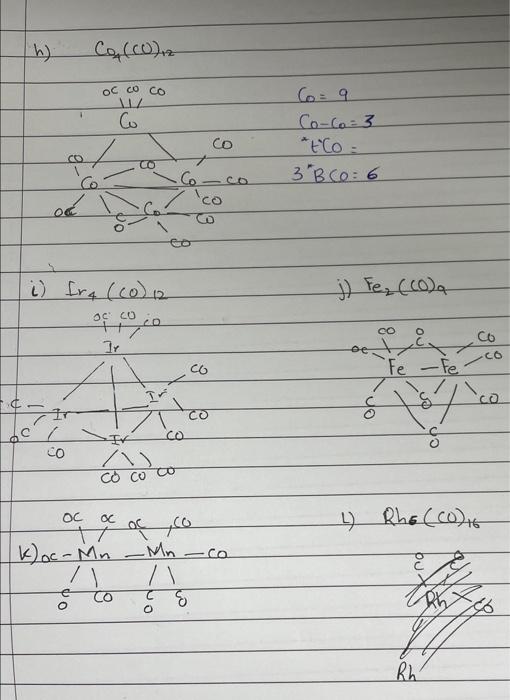 h) Co4(CO)12
OC CO CO
Co
CO
CO
CO
Co
Co
CO
OC
C
O
Co
CO
CO
CO
Co = 9
Co-Co = 3
*tCO =
3*BCO = 6
i) Ir4(CO)12
OC CO CO
Ir
CO
C
Ir
Ir
CO
OC
CO
Ir
CO
CO CO CO
j) Fe2(CO)9
CO
O
C
CO
OC
CO
Fe — Fe
C
O
C
O
CO
C
O
OC OC OC CO
k) OC-Mn — Mn — CO
C
O
CO
C
O
C
O
L) Rh6(CO)16
O
C
O
C
Rh
CO
Rh